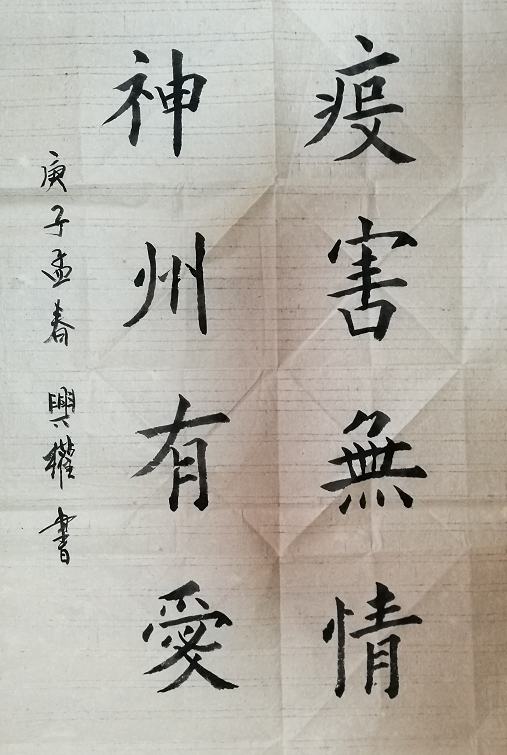 疫害無情
神州有愛
庚子孟春 興權書